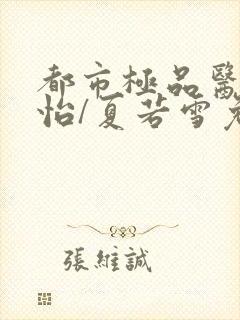 都市極品醫
怡/夏若雪
張維誠